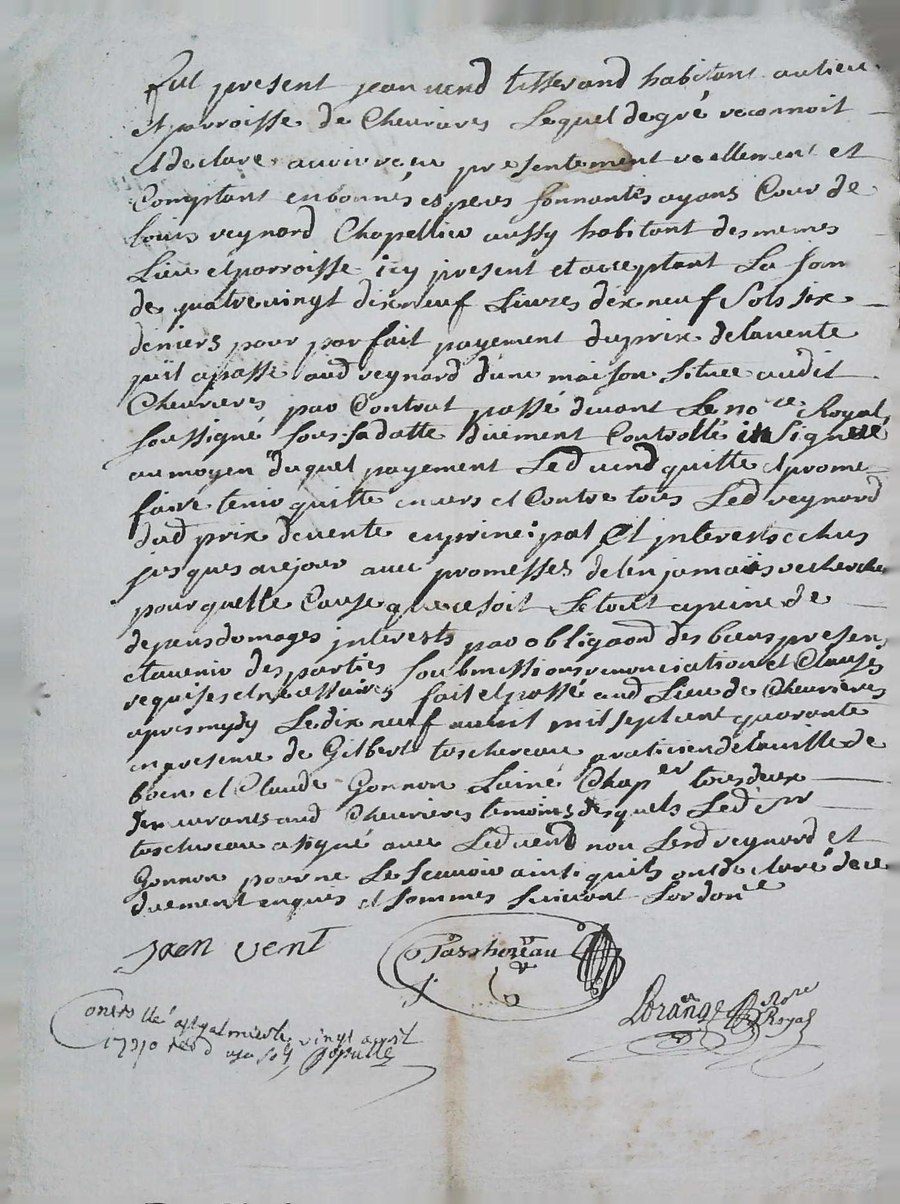 fut present jean vend tisserand habitant au lieu
et parroisse de Cheuriares Lequel de gré reconnoit
et declare auoir reçu presentement reellement et
Comptant en bonnes especes sonnantes ayans Cour de
louis reynard Chapellier aussy habitant des memes
Lieu et parroisse icy present et acceptant La som
de quatre vingt dix neuf Livres dix neuf sols six
deniers pour parfait payement du prix de la uente
qu'il a passé aud reynard d'une maison située audit
Cheurieres par Contrat passé deuant Le no.re Royal
soussigné sous sa datte duëment Controllé insignué
au moyen duquel payement Led uend quitte et prome
faire tenir quitte enuers et Contre tous Led reynard
dud prix de uente en principal et interests echus
jusques a ce jour auec promesses de l'en jamais recherche
pour quelle Cause que ce soit Le tout a peine de
depens domages interests par obligaôn des biens presen
et auenir des parties soubmissions renonciation et Clauses
requises et necessaires fait et passé aud Lieu de Cheurieres
apres mydy Le dix neuf auril mil sept cent quarante
en presence de Gilbert taschereau praticien de la uille de
boen et Claude Gonnon Lainé Chaper tous deux
demeurants aud Cheurieres temoins desquels Led sr
taschereau a signé auec Led uend non Led reynard et
Gonnon pour ne Le scauoir ainsi qu'ils ont declaré de ce
duement enquis et sommes suiuant Lordonce
jaen vent
Taschereau
Lorange nore
Royal
Controllé a st galmier le vingt auril
1740 reçu